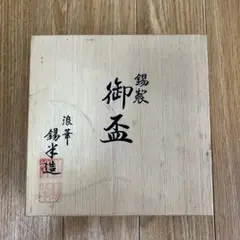 錫製
御盃
浪華
錫半造